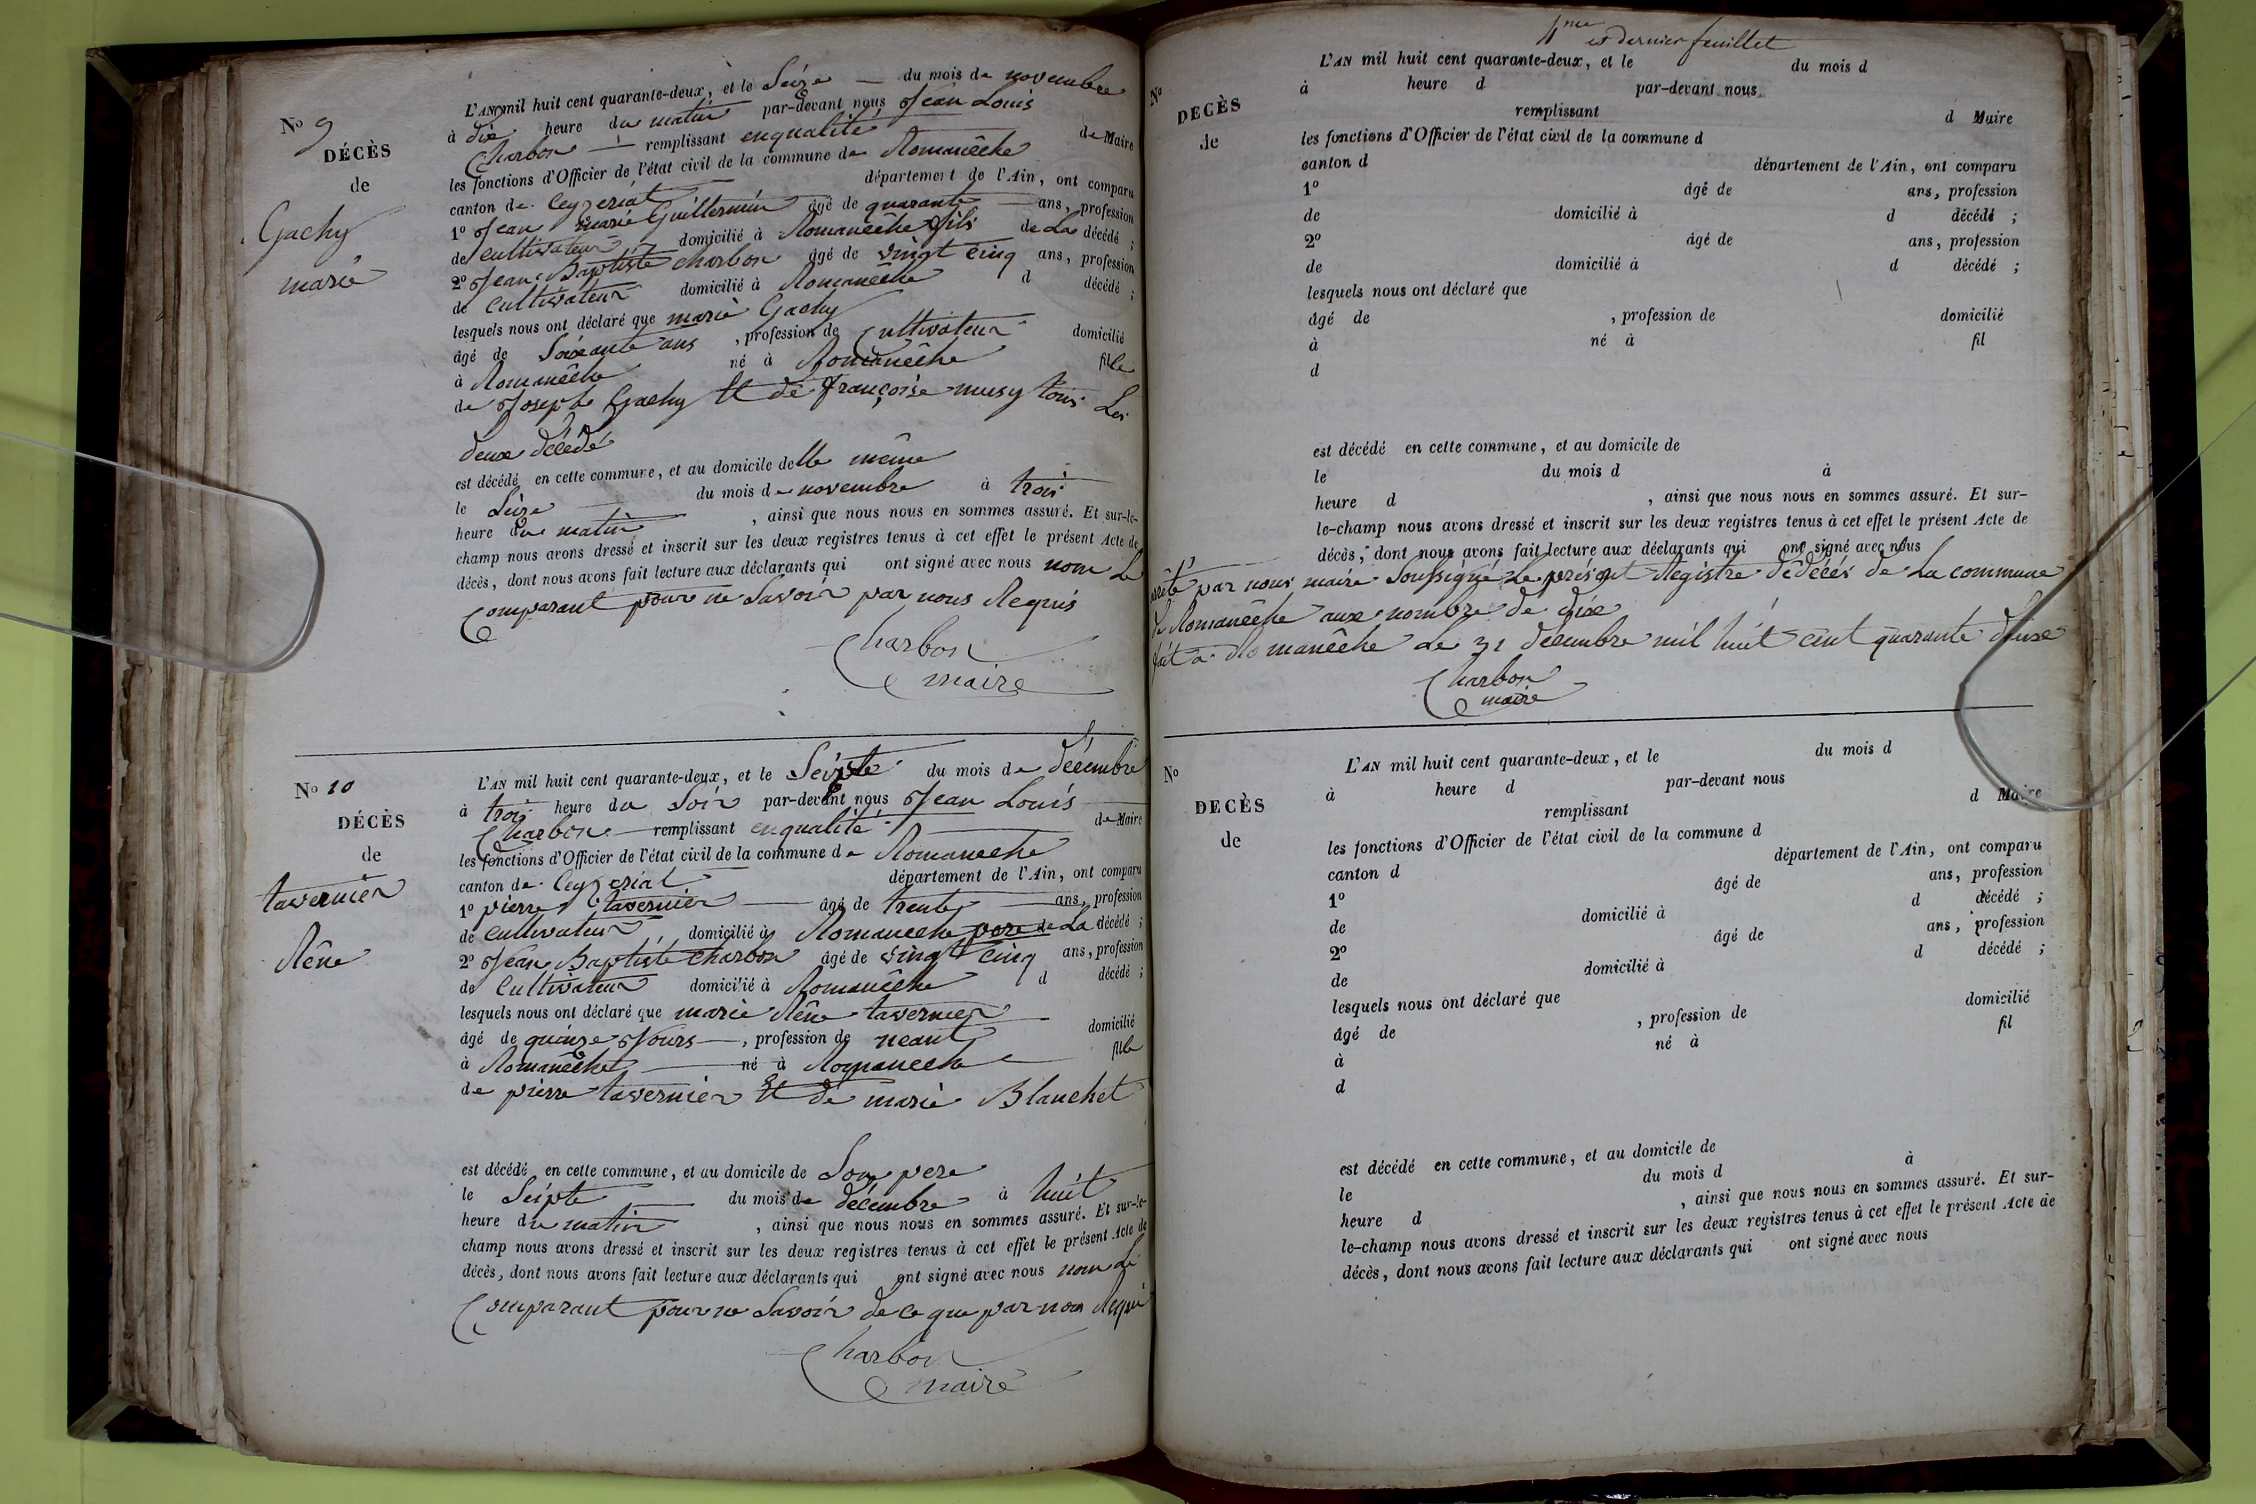 No 9
DÉCÈS
de
Gachy
marie
L'AN mil huit cent quarante-deux, et le Seize du mois de novembre
à dix heure du matin par-devant nous Jean Louis
Charbon remplissant enqualité de Maire
les fonctions d'Officier de l'état civil de la commune de Romanêche
canton de Ceyzeriat département de l'Ain, ont comparu
1º Jean marie Guillermin âgé de quarante ans, profession
de cultivateur domicilié à Romanêche fils de La décédé ;
2º Jean Baptiste charbon âgé de vingt cinq ans, profession
de Cultivateur domicilié à Romanêche d décédé ;
lesquels nous ont déclaré que marie Gachy
âgé de Soixante ans , profession de Cultivateur domicilié
à Romanêche né à Romanêche fille
de Joseph Gachy et de françoise musy tous Les
deux décédé
est décédé en cette commune, et au domicile delle même
le Seize du mois de novembre à trois
heure du matin , ainsi que nous nous en sommes assuré. Et sur-le-
champ nous avons dressé et inscrit sur les deux registres tenus à cet effet le présent Acte de
décès, dont nous avons fait lecture aux déclarants qui ont signé avec nous non Le
Comparant pour ne Savoir par nous Requis
Charbon
maire
No 10
DÉCÈS
de
tavernier
Rêne
L'AN mil huit cent quarante-deux, et le Seipte du mois de décembre
à trois heure du Soir par-devant nous Jean Louis
Charbon remplissant enqualité de Maire
les fonctions d'Officier de l'état civil de la commune de Romanêche
canton de Ceyzeriat département de l'Ain, ont comparu
1º pierre tavernier âgé de trente ans, profession
de cultivateur domicilié à Romaneche pere de La décédé ;
2º Jean Baptiste charbon âgé de vingt cinq ans, profession
de Cultivateur domicilié à Romanêche d décédé ;
lesquels nous ont déclaré que marie Rêne tavernier
âgé de quinze Jours , profession de neant domicilié
à Romanêche né à Romaneche fille
de pierre tavernier Et de marie Blanchet
est décédé en cette commune, et au domicile de Son pere
le Seipte du mois de décembre à huit
heure du matin , ainsi que nous nous en sommes assuré. Et sur-le-
champ nous avons dressé et inscrit sur les deux registres tenus à cet effet le présent Acte de
décès, dont nous avons fait lecture aux déclarants qui ont signé avec nous non Le
Comparant pour ne Savoir de ce que par nous Requi
Charbon
maire
4me et dernier feuillet
No
DECÈS
de
L'AN mil huit cent quarante-deux, et le du mois d
à heure d par-devant nous
remplissant d Maire
les fonctions d'Officier de l'état civil de la commune d
canton d département de l'Ain, ont comparu
1º âgé de ans, profession
de domicilié à d décédé ;
2º âgé de ans, profession
de domicilié à d décédé ;
lesquels nous ont déclaré que
âgé de , profession de domicilié
à né à fil
d
est décédé en cette commune, et au domicile de
le du mois d à
heure d , ainsi que nous nous en sommes assuré. Et sur-
le-champ nous avons dressé et inscrit sur les deux registres tenus à cet effet le présent Acte de
décès, dont nous avons fait lecture aux déclarants qui ont signé avec nous
par nous maire Soussigné Le présent Registre de décés de La commune
de Romanêche aux nombre de dixe
fait a Romanêche le 31 décembre mil huit cent quarante deuxe
Charbon
maire
No
DECÈS
de
L'AN mil huit cent quarante-deux, et le du mois d
à heure d par-devant nous
remplissant d Maire
les fonctions d'Officier de l'état civil de la commune d
canton d département de l'Ain, ont comparu
1º âgé de ans, profession
de domicilié à d décédé ;
2º âgé de ans, profession
de domicilié à d décédé ;
lesquels nous ont déclaré que
âgé de , profession de domicilié
à né à fil
d
est décédé en cette commune, et au domicile de
le du mois d à
heure d , ainsi que nous nous en sommes assuré. Et sur-
le-champ nous avons dressé et inscrit sur les deux registres tenus à cet effet le présent Acte de
décès, dont nous avons fait lecture aux déclarants qui ont signé avec nous